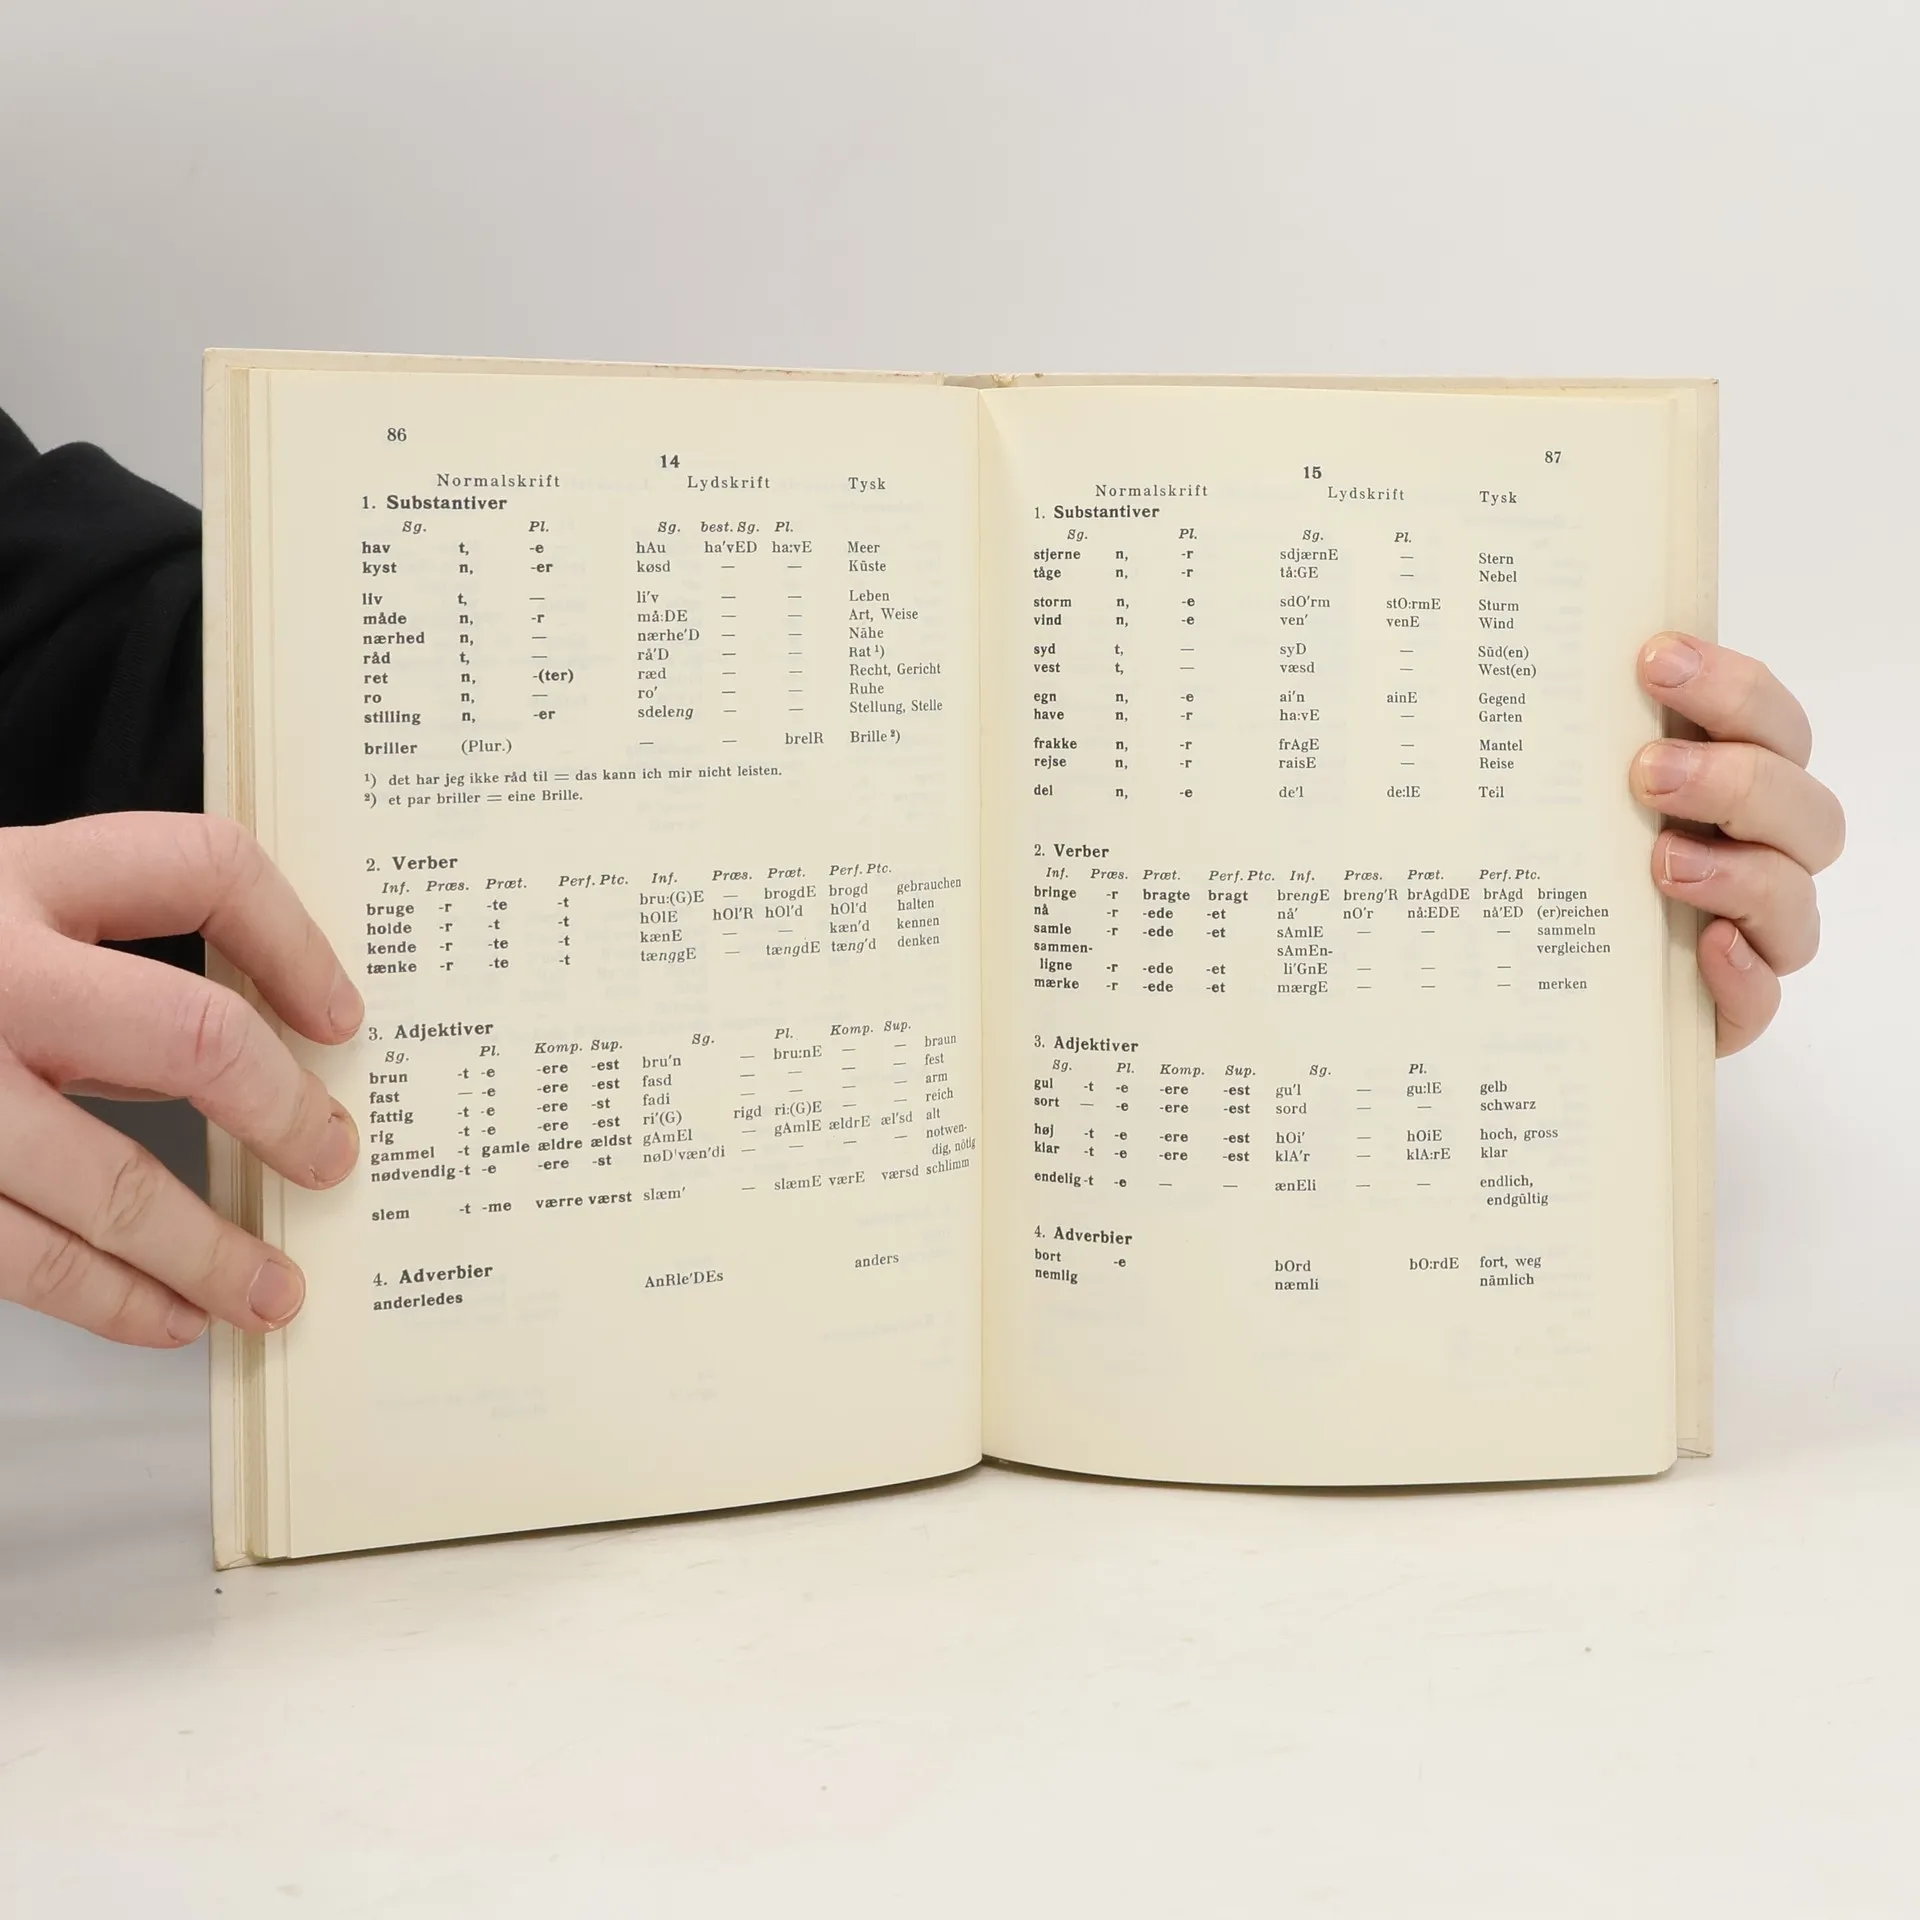 86
14
Normalskrift Lydskrift Tysk
1. Substantiver
Sg. Pl. Sg. best. Sg. Pl.
hav t, -e hAu ha'vED ha:vE Meer
kyst n, -er køsd — — Küste
liv t, — li'v — — Leben
måde n, -r må:DE — — Art, Weise
nærhed n, — nærhe'D — — Nähe
råd t, — rå'D — — Rat ¹)
ret n, -(ter) ræd — — Recht, Gericht
ro n, — ro' — — Ruhe
stilling n, -er sdeleng — — Stellung, Stelle
briller (Plur.) — — brelR Brille ²)
¹) det har jeg ikke råd til = das kann ich mir nicht leisten.
²) et par briller = eine Brille.
2. Verber
Inf. Præs. Præt. Perf. Ptc. Inf. Præs. Præt. Perf. Ptc.
bruge -r -te -t bru:(G)E — brogdE brogd gebrauchen
holde -r -t -t hOlE hOl'R hOl'd hOl'd halten
kende -r -te -t kænE — — kæn'd kennen
tænke -r -te -t tænggE — tængdE tæng'd denken
3. Adjektiver
Sg. Pl. Komp. Sup. Sg. Pl. Komp. Sup.
brun -t -e -ere -est bru'n — bru:nE — — braun
fast — -e -ere -est fasd — — — — fest
fattig -t -e -ere -st fadi — — — — arm
rig -t -e -ere -est ri'(G) rigd ri:(G)E — — reich
gammel -t gamle ældre ældst gAmEl — gAmlE ældrE æl'sd alt
nødvendig -t -e -ere -st nøD'væn'di — — — — notwen-
dig, nötig
slem -t -me værre værst slæm' — slæmE værE værsd schlimm
4. Adverbier
anderledes AnRle'DEs anders
87
15
Normalskrift Lydskrift Tysk
1. Substantiver
Sg. Pl. Sg. Pl.
stjerne n, -r sdjærnE — Stern
tåge n, -r tå:GE — Nebel
storm n, -e sdO'rm stO:rmE Sturm
vind n, -e ven' venE Wind
syd t, — syD — Süd(en)
vest t, — væsd — West(en)
egn n, -e ai'n ainE Gegend
have n, -r ha:vE — Garten
frakke n, -r frAgE — Mantel
rejse n, -r raisE — Reise
del n, -e de'l de:lE Teil
2. Verber
Inf. Præs. Præt. Perf. Ptc. Inf. Præs. Præt. Perf. Ptc.
bringe -r bragte bragt brengE breng'R brAgdDE brAgd bringen
nå -r -ede -et nå' nO'r nå:EDE nå'ED (er)reichen
samle -r -ede -et sAmlE — — — sammeln
sammen- sAmEn- vergleichen
ligne -r -ede -et li'GnE — — —
mærke -r -ede -et mærgE — — — merken
3. Adjektiver
Sg. Pl. Komp. Sup. Sg. Pl.
gul -t -e -ere -est gu'l — gu:lE gelb
sort — -e -ere -est sord — — schwarz
høj -t -e -ere -est hOi' — hOiE hoch, gross
klar -t -e -ere -est klA'r — klA:rE klar
endelig -t -e — — ænEli — — endlich,
endgültig
4. Adverbier
bort -e bOrd bO:rdE fort, weg
nemlig næmli nämlich